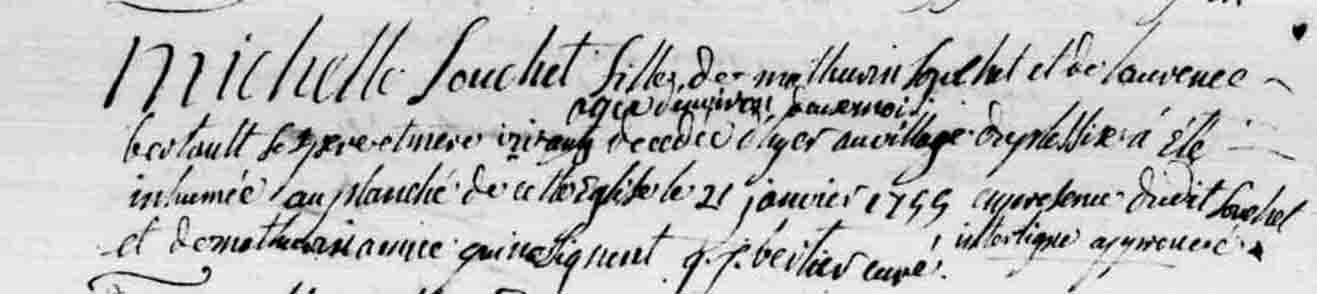 Michelle Souchet fille de mathurin Souchet et de Laurence
agee d'environ
bertault Ses pere et mere vivants decedee d'hyer au village du plessix á Été
inhumée au planché de cette Eglise le 21 janvier 1755 en presence du dit Souchet
et de mathurin qui ne Signent g.j. bertier curé. interligne approuvé